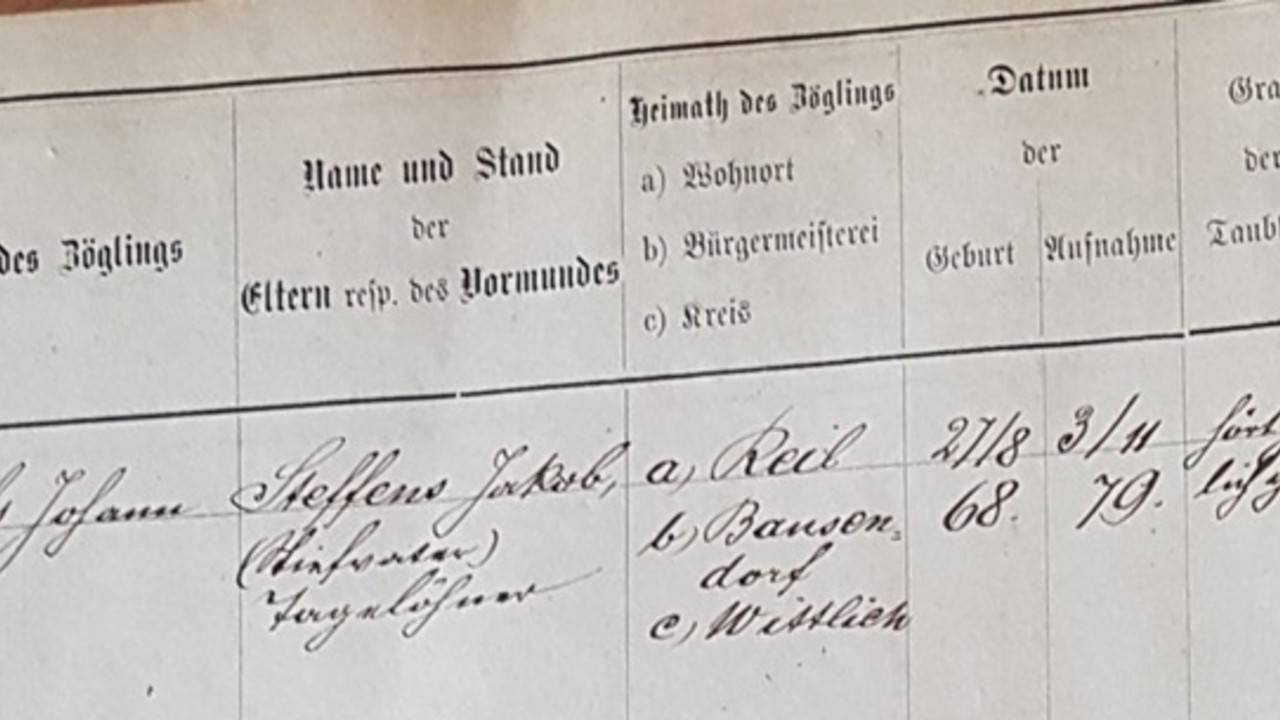 des Zöglings
Name und Stand
der
Eltern resp. des Vormundes
Heimath des Zöglings
a) Wohnort
b) Bürgermeisterei
c) Kreis
Datum
der
Geburt
Aufnahme
der
Johann
Steffens Jakob,
(Stiefvater)
Tagelöhner
a) Reil
b) Bausen-
dorf
c) Wittlich
27/8
68.
3/11
79.
hört